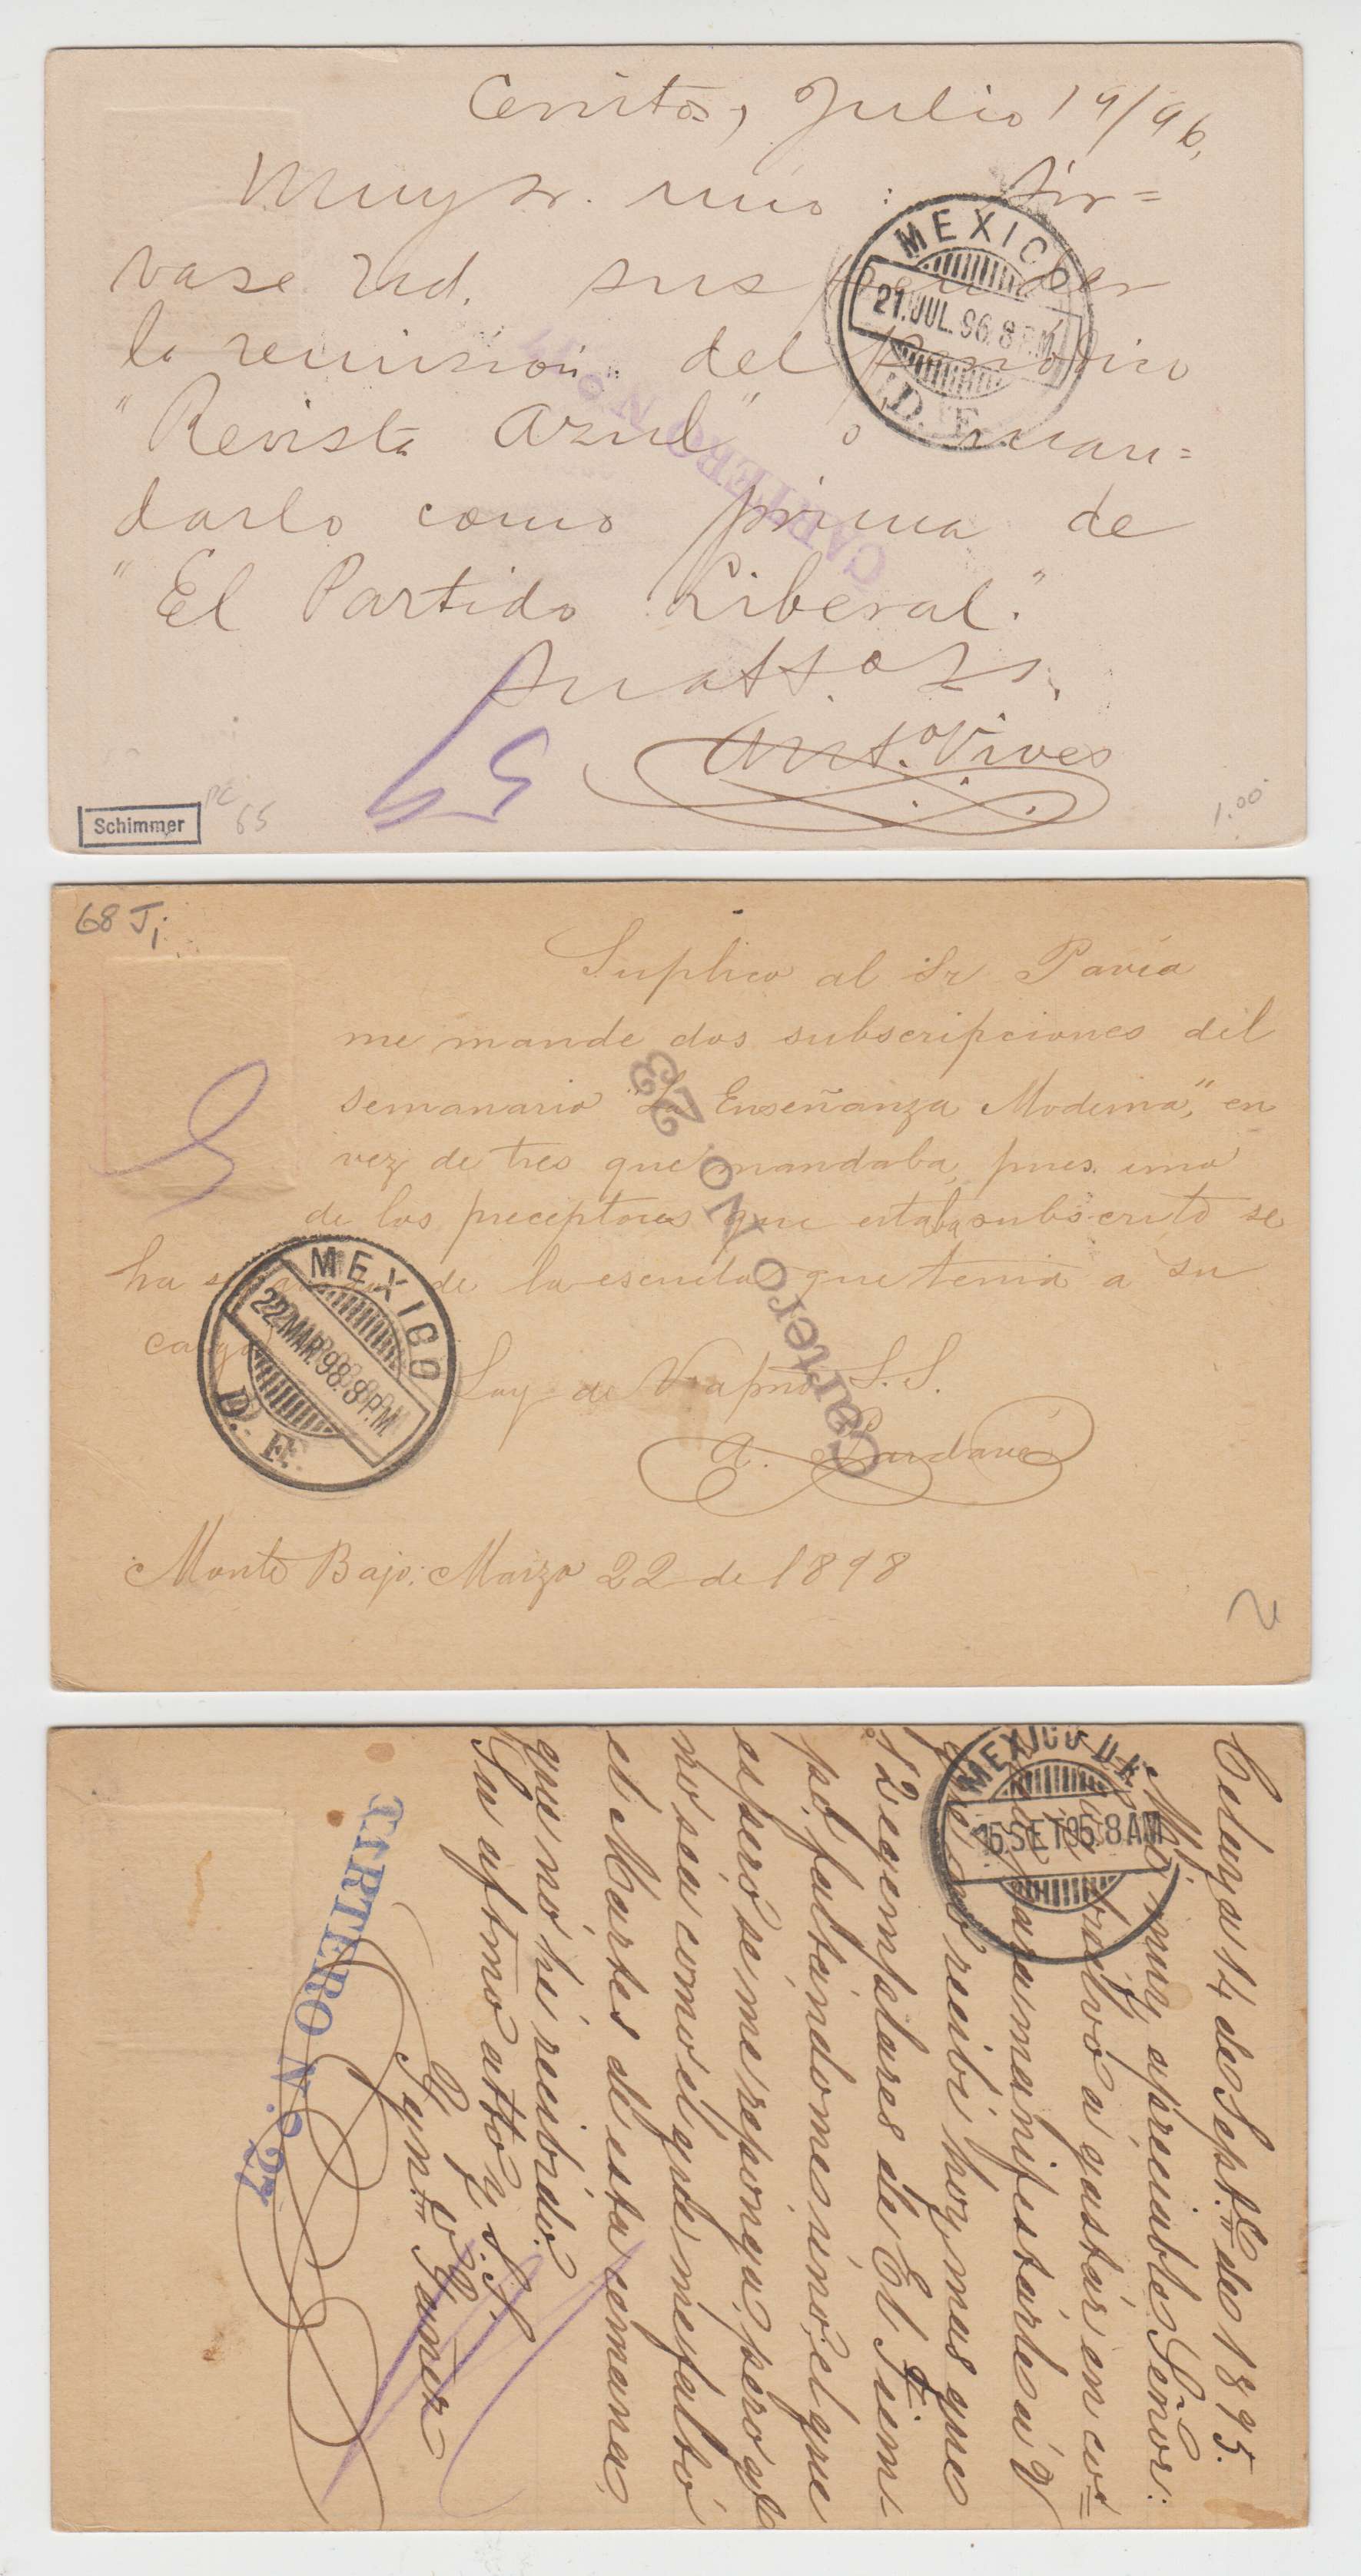 Cerritos, Julio 19/96,
Muy Sr. mio: Sír=
vase Ud. suspender
la remision del periodico
"Revista Azul" o man=
darlo como prima de
"El Partido Liberal."
Su att. S. S.
Ant.º Vives
MEXICO
21.JUL.96.8 P.M.
D. F.
CARTERO No
Schimmer
PC 65
1.00
68 J;
Suplico al Sr Pavía
me mande dos subscripciones del
semanario "La Enseñanza Moderna", en
vez de tres que mandaba, pues uno
de los preceptores que estaba subscrito se
ha de la escuela que tenia a su
cargo
Soy de V. afmo S. S.
A.
Monte Bajo, Marzo 22 de 1898
MEXICO
22.MAR.98.8 P.M.
D. F.
Cartero No. 23
2
Celaya 14 de Sept.e de 1895.
Muy apreciable Señor:
vuelvo a gastar en es=
para manifestarle a V
que no recibi hoy mas que
12 egemplares de El Tiem
po, faltandome uno, el que
espero se me reponga, pero qe
no sea como el que me faltó
el Martes de esta cemana,
que no hé recibido.
Su afmo atto y S. S.
Ygn.o
MEXICO D.F.
15 SET 95 8 AM
CARTERO N.o 27